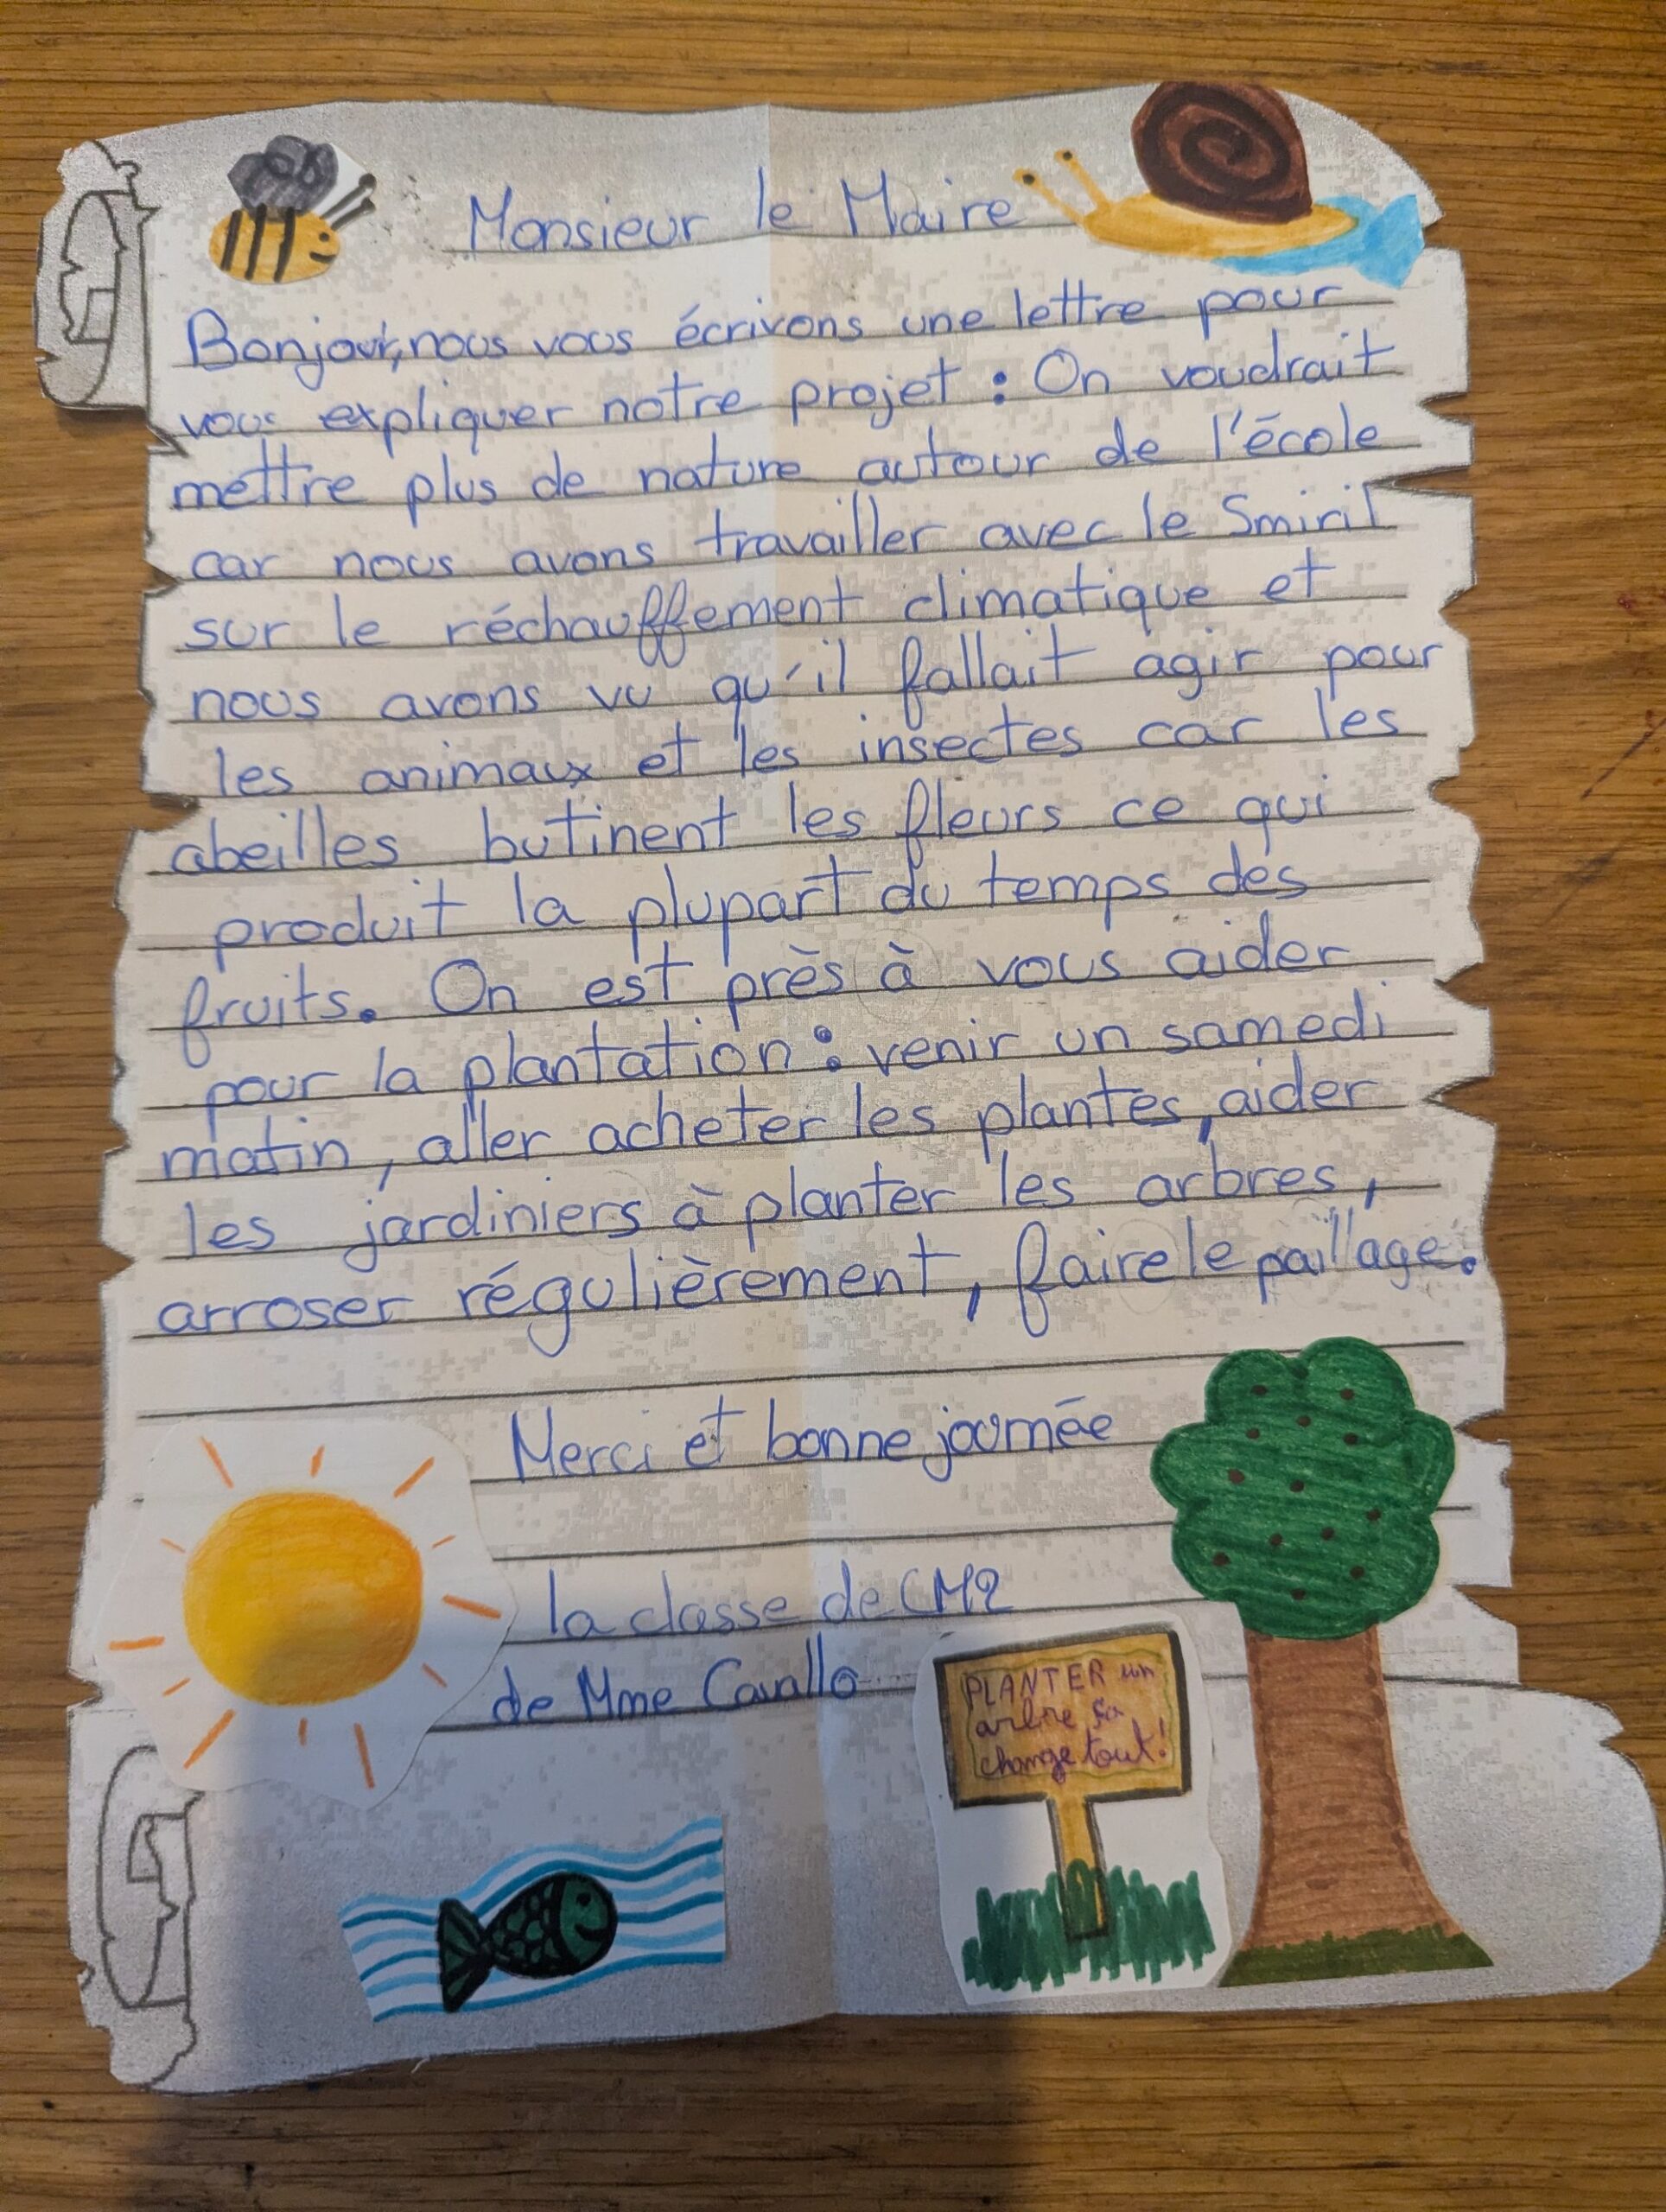 Monsieur le Maire
Bonjour, nous vous écrivons une lettre pour
vous expliquer notre projet : On voudrait
mettre plus de nature autour de l'école
car nous avons travailler avec le Smiril
sur le réchauffement climatique et
nous avons vu qu'il fallait agir pour
les animaux et les insectes car les
abeilles butinent les fleurs ce qui
produit la plupart du temps des
fruits. On est près à vous aider
pour la plantation : venir un samedi
matin, aller acheter les plantes, aider
les jardiniers à planter les arbres,
arroser régulièrement, faire le paillage.
Merci et bonne journée
la classe de CM2
de Mme Cavallo
PLANTER un
arbre ça
change tout!